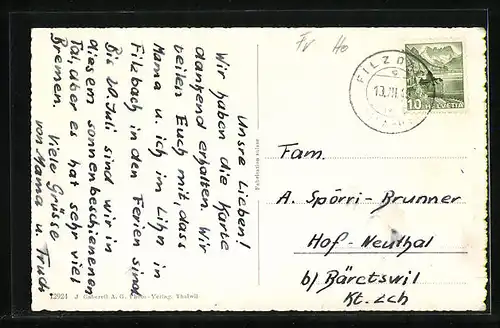 Unsre Lieben!
Wir haben die Karte
dankend erhalten. Wir
teilen Euch mit, dass
Mama u. ich im Lihn in
Filzbach in den Ferien sind
Bis 20. Juli sind wir in
diesem sonnenbeschienenen
Tal, aber es hat sehr viel
Bremen. Viele Grüsse
von Mama u. Trudi
Fabrication suisse
12924 J. Gaberell A. G. Photo-Verlag, Thalwil
FILZ
13.VII
10 HELVETIA
Fam.
A. Spörri-Brunner
Hof-Neuthal
b/ Bäretswil
Kt. Zch